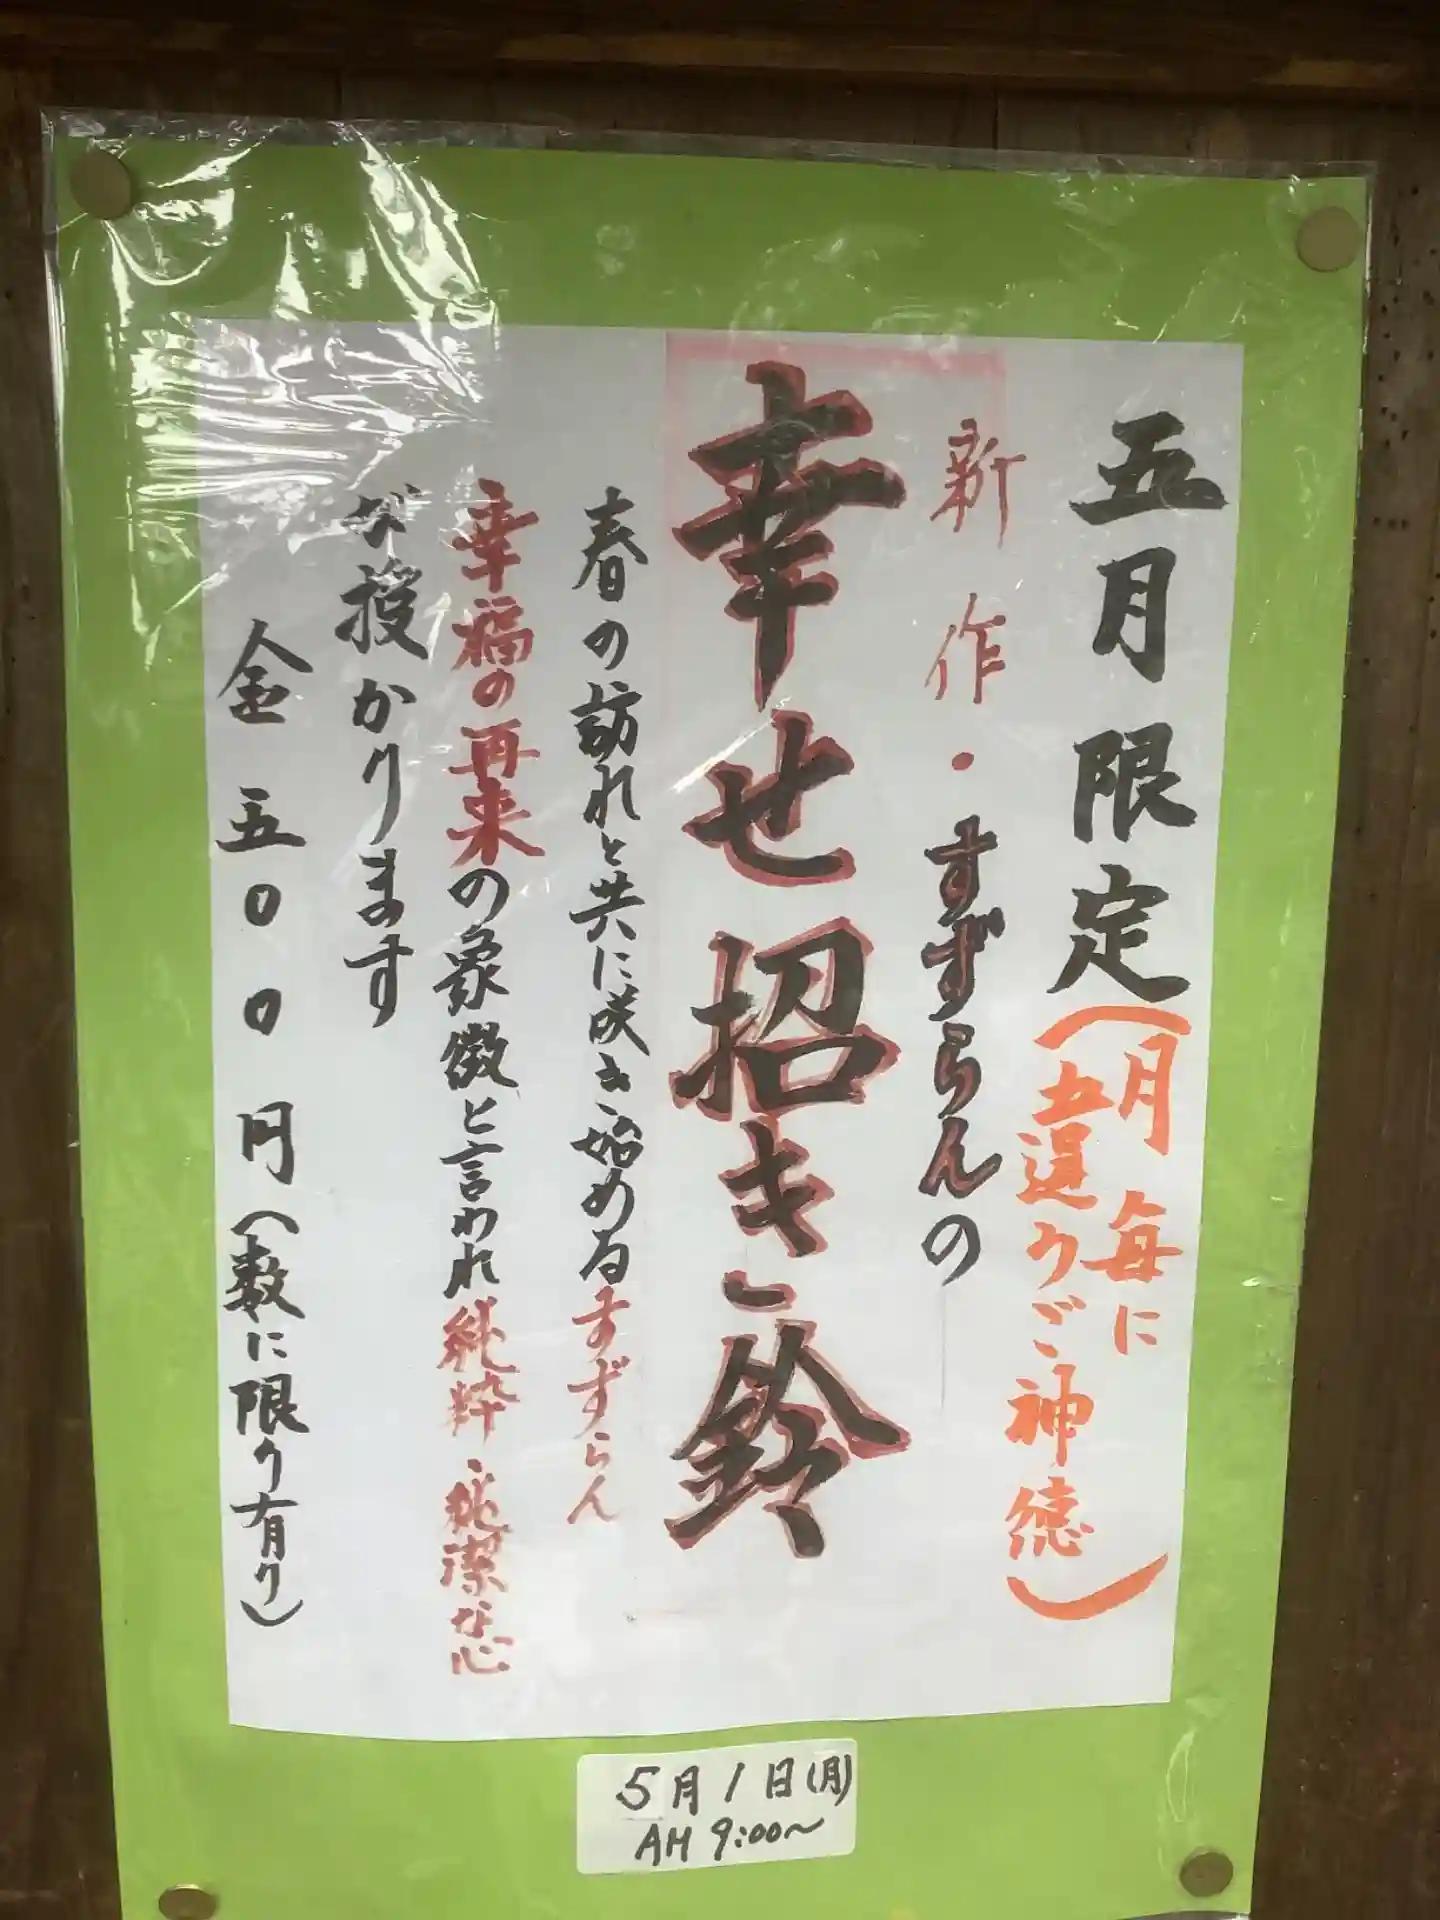 五月限定(月毎に
違うご神徳)
新作・すずらんの
幸せ招き鈴
春の訪れと共に咲き始めるすずらん
幸福の再来の象徴と言われ純粋、純潔な心
が授かります
金五00円(数に限り有り)
5月1日(月)
AM 9:00~